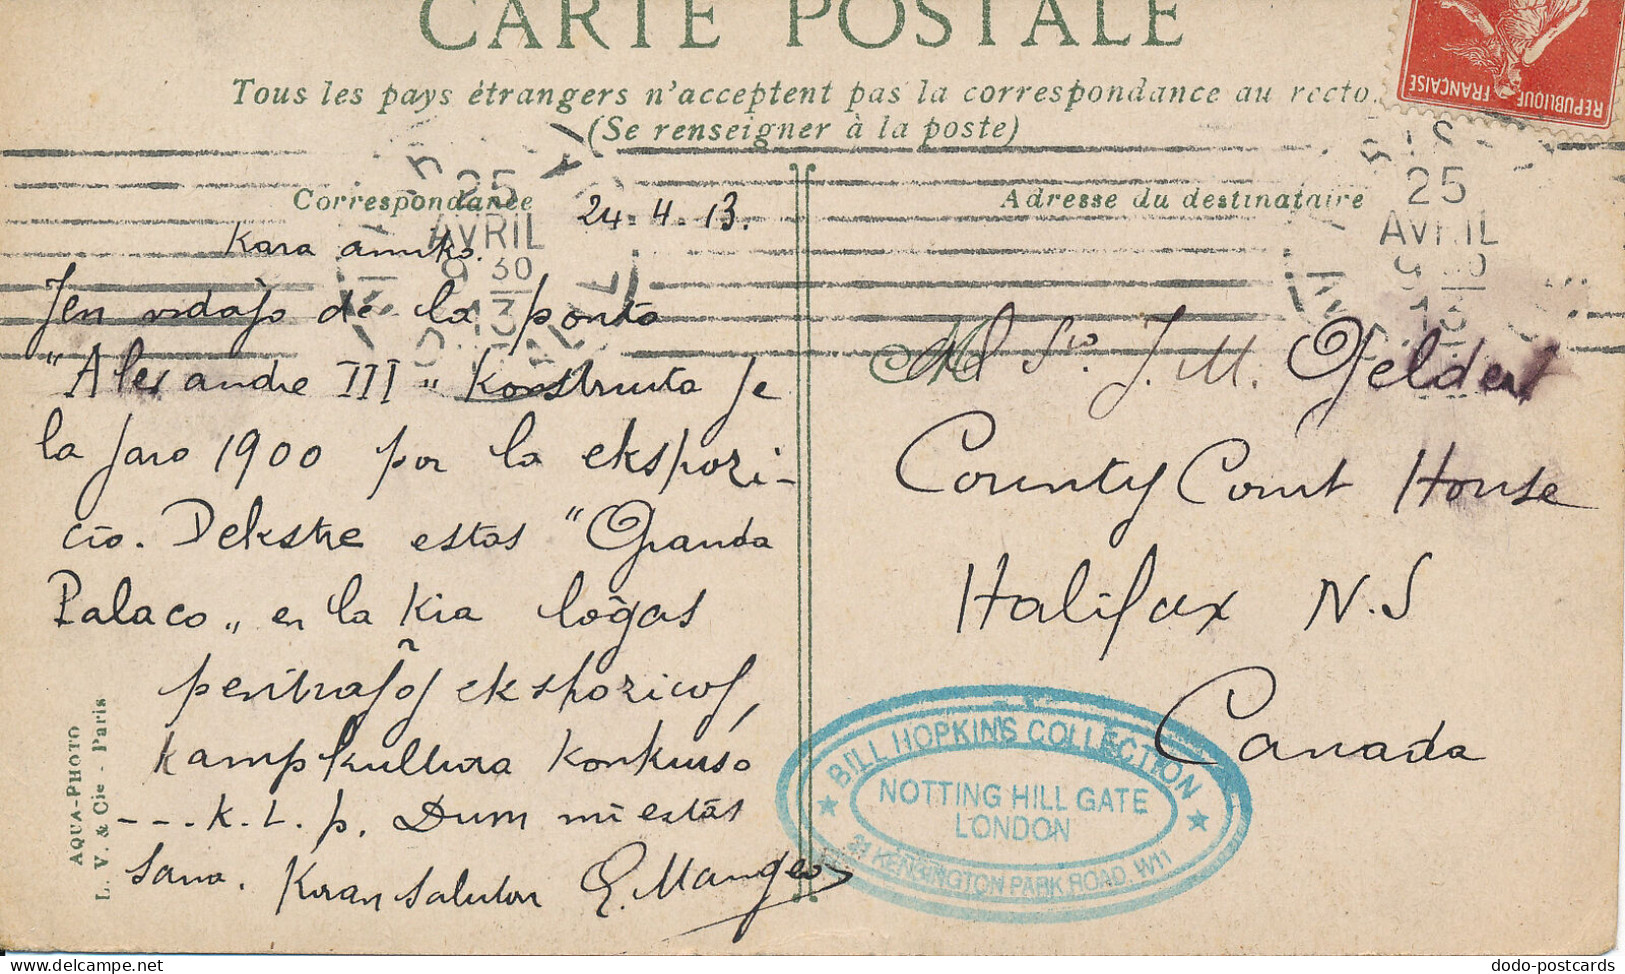 CARTE POSTALE
Tous les pays étrangers n'acceptent pas la correspondance au recto.
(Se renseigner à la poste)
REPUBLIQUE FRANÇAISE
Correspondance
24.4.13.
Adresse du destinataire
25
AVRIL
9 30
13
25
AVRIL
13
Kara amiko.
Jen vidajo de la ponto
"Alexandre III" Konstruita je
la jaro 1900 por la ekspozi-
cio. Dekstre estas "Granda
Palaco" en la kia loĝas
pentraĵoj ekspozicoj,
kampkultura konkurso
---k.t.p. Dum mi estas
sana. Koran saluton E. Mangeo
Al Sro. J. M. Gelder
County Court House
Halifax N.S
Canada
AQUA-PHOTO
L. V. & Cie - Paris
BILL HOPKIN'S COLLECTION
NOTTING HILL GATE
LONDON
KENSINGTON PARK ROAD, W11
www.delcampe.net
dodo-postcards